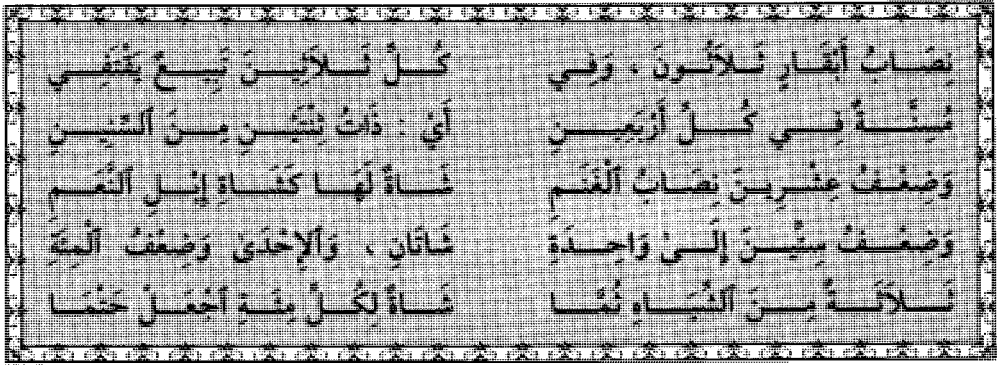 نِصَابُ أَبْقَارٍ ثَلاَثُونَ ، وَفِي كُلِّ ثَلاَثِينَ تَبِيعٌ يَقْتَفِي
مُسِنَّةٌ فِي كُلِّ أَرْبَعِينِ أَيْ : ذَاتُ ثِنْتَيْنِ مِنَ ٱلسِّنِينِ
وَضِعْفُ عِشْرِينَ نِصَابُ ٱلْغَنَمِ شَاةٌ لَهَا كَشَاةِ إِبْلِ ٱلنَّعَمِ
وَضِعْفُ سِتِّينَ إِلَىٰ وَاحِدَةِ شَاتَانِ ، وَٱلإِحْدَىٰ وَضِعْفُ ٱلْمِئَةِ
ثَلاَثَةٌ مِنَ ٱلشِّيَاهِ ثُمَّا شَاةٌ لِكُلِّ مِئَةٍ ٱجْعَلْ حَتْمَا